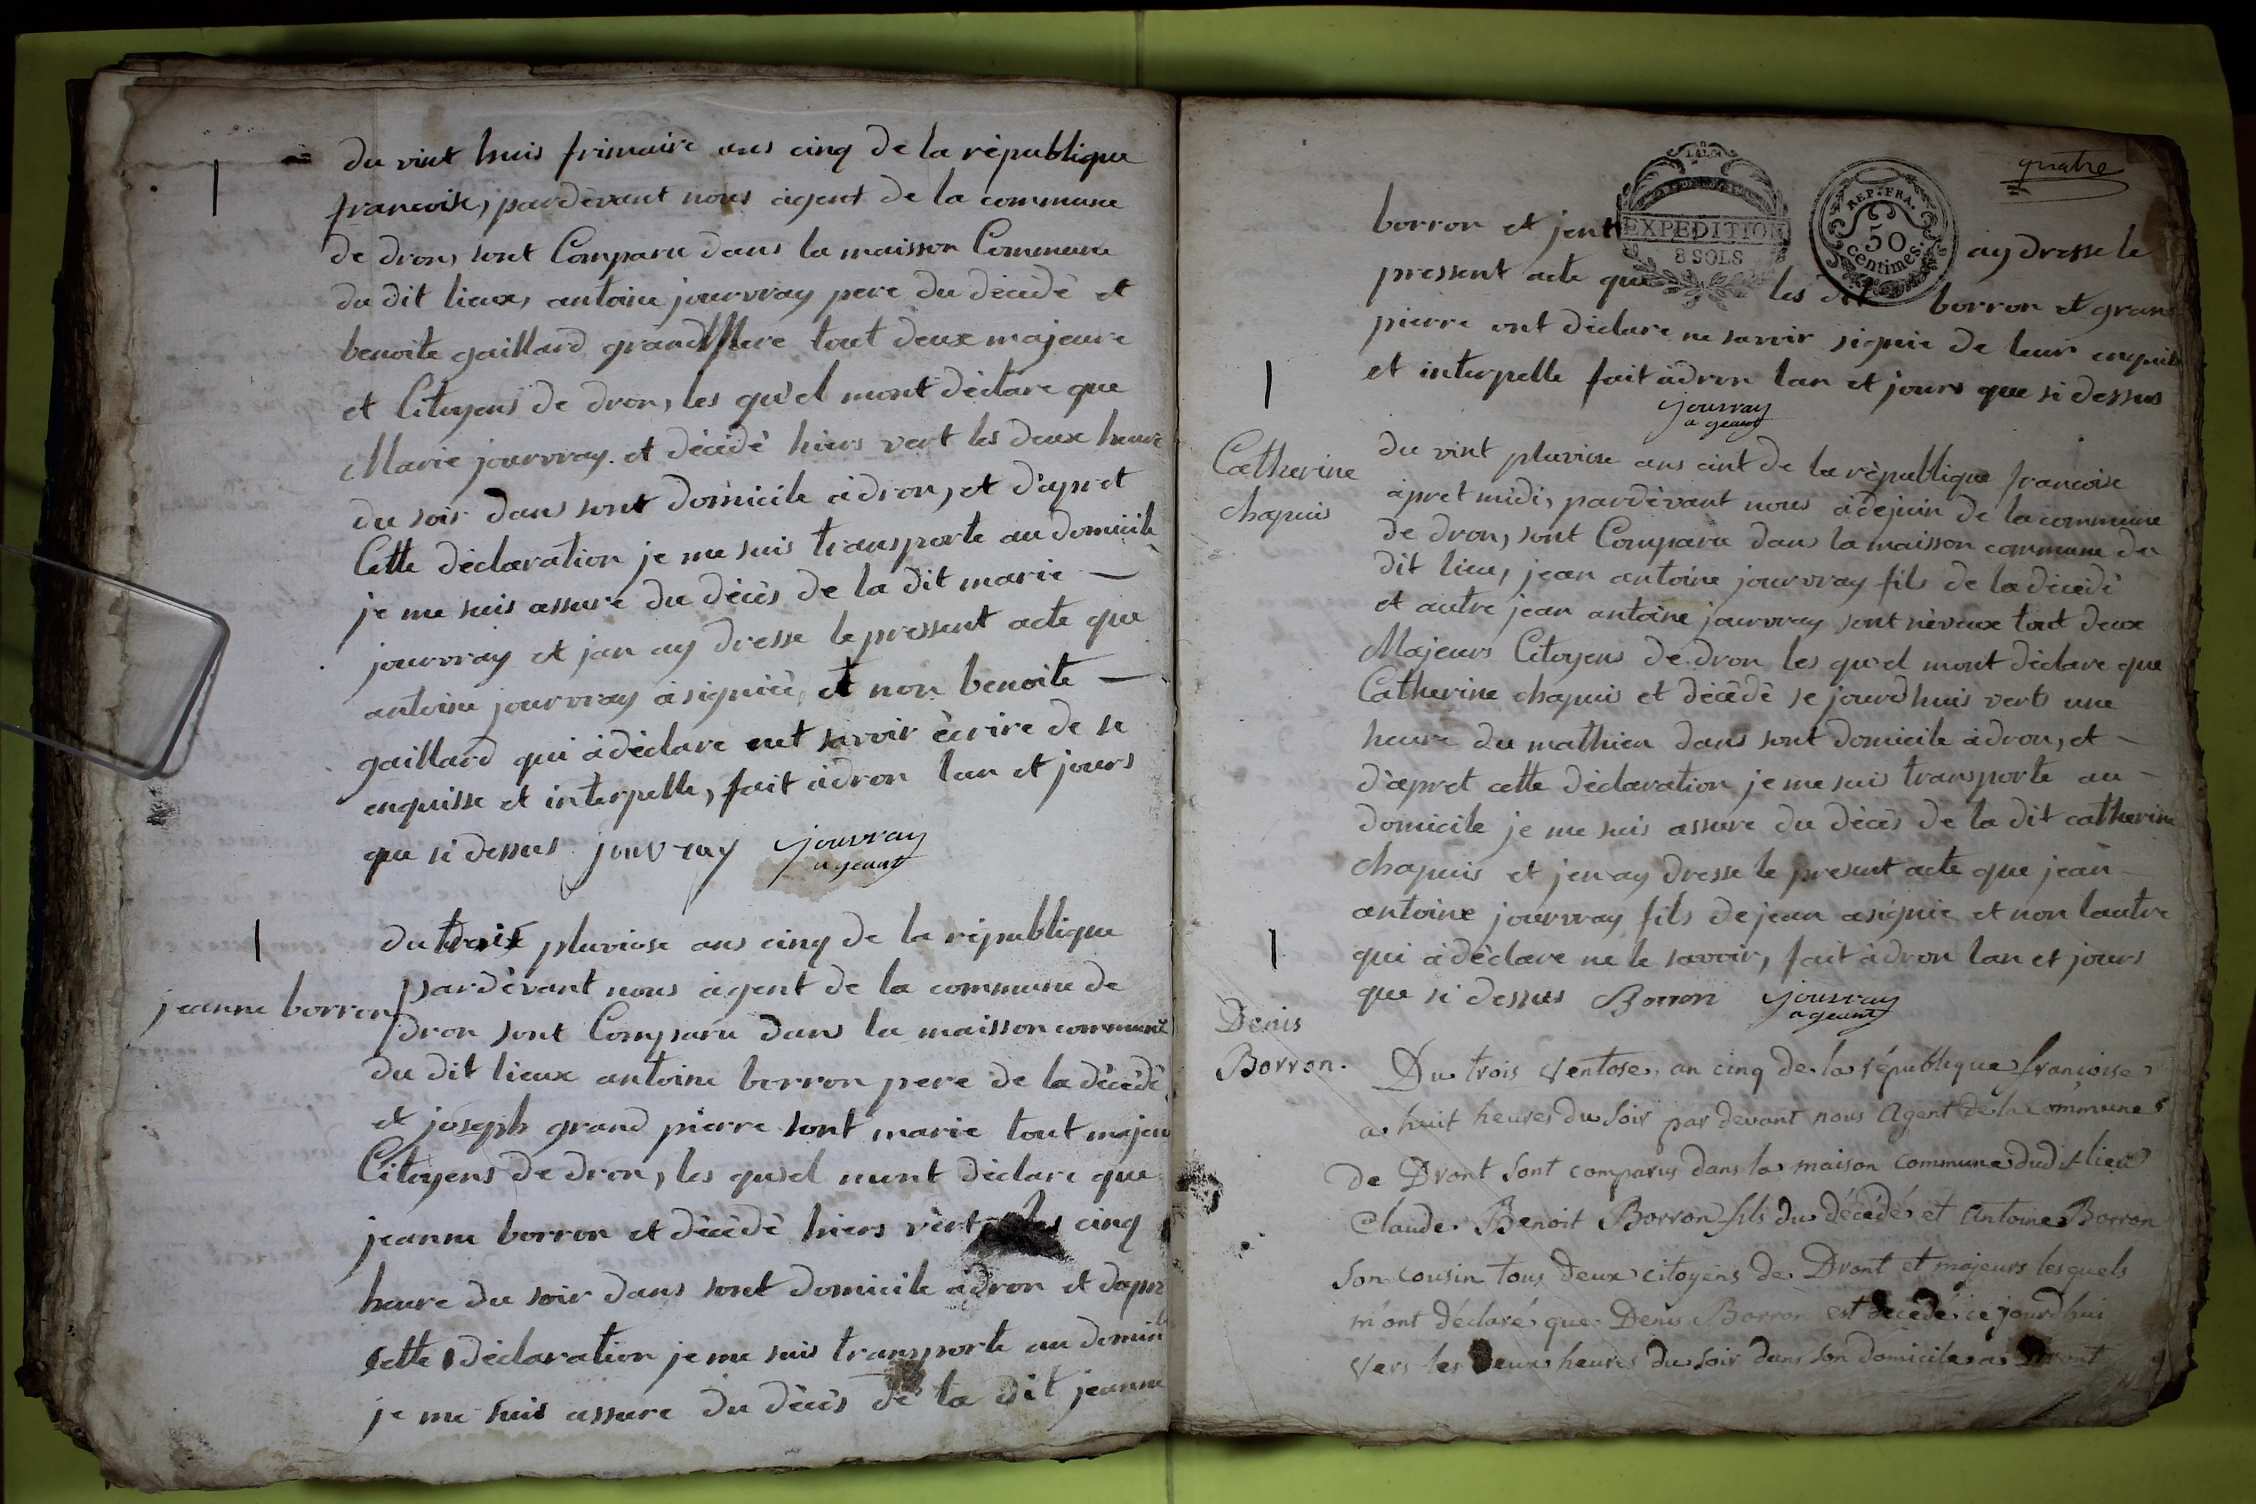 du vint huis frimaire ans cinq de la rèpublique
francoise, pardèvant nous àgent de la commune
de dron, sont Comparu dans la maisson Commune
du dit lieux, antoine jourvray pere du dècèdè et
benoite gaillard grand Mere tout deux majeure
et Citoyens de dron, les qu'el mont dèclare que
Marie jourvray et dècèdè hiers vert les deux heure
du soir dans sont domicile àdron, et d'apret
Cette dèclaration je me suis transporte au domicile
je me suis assure du dècès de la dit marie —
jourvray et jan ay dresse le pressent acte que
antoine jourvray àsigniè, et non benoite —
gaillard qui àdèclare savoir ècrire de se
enquisse et interpelle, fait àdron lan et jours
que si dessus jouvray jouvray
ageant
jeanne borron
du trois pluviose ans cinq de la rèpublique
pardèvant nous àgent de la commune de
dron sont Comparu dans la maisson commune
du dit lieux antoine borron pere de la dècèdè
et joseph grand pierre sont marie tout majeu
Citoyens de dron, les qu'el mont dèclare que
jeanne borron et dècèdè hiers vert les cinq
heure du soir dans sont domicile àdron et dapr
cette dèclaration je me suis transporte au domicil
je me suis assure du dècès de la dit jeanne
quatre
EXPEDITION
8 SOLS
REP. FRA.
50
centimes.
borron et jent ay dresse le
pressent acte que les dit borron et grand
pierre ont dèclare ne savoir signie de leur enquis
et interpelle fait àdron lan et jours que si dessus
jouvray
ageant
Catherine
chapuis
du vint pluviose ans cint de la rèpublique francoise
àpret midi, pardèvant nous àdejuin de la commune
de dron, sont Comparu dans la maisson commune du
dit lieu, jean antoine jourvray fils de la dècèdè
et autre jean antoine jourvray sont nèveux tout deux
Majeurs Citoyens de dron les qu'el mont dèclare que
Catherine chapuis et dècèdè se jourdhuis verts une
heure du mathien dans sont domicile àdron, et —
d'apret cette dèclaration je me suis transporte au —
domicile je me suis assure du dècès de la dit catherine
chapuis et jen ay dresse le present acte que jean —
antoine jourvray fils de jean asignie et non lautre
qui àdèclare ne le savoir, fait àdron lan et jours
que si dessus Borron jouvray
ageant
Denis
Borron.
Du trois Ventose, an cinq de la république françoise
a huit heures du Soir par devant nous Agent de la commune
de Dront Sont comparus dans la maison commune dudit lieu
Claude Benoit Borron fils du décédé et Antoine Borron
Son cousin tous deux citoyens de Dront et majeurs lesquels
m'ont déclaré que Denis Borron est décédé ce jourd'hui
Vers les deux heures du Soir dans Son domicile a Dront